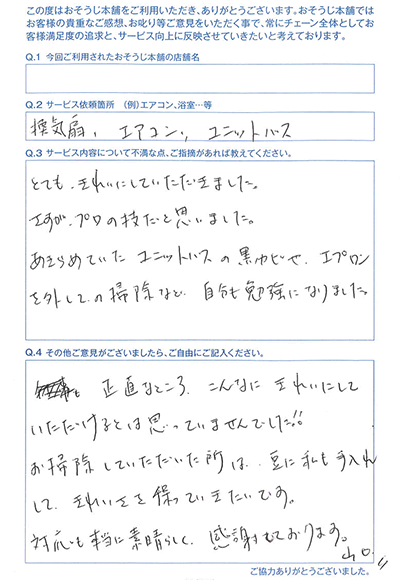 この度はおそうじ本舗をご利用いただき、ありがとうございます。おそうじ本舗では
お客様の貴重なご感想、お叱り等ご意見をいただく事で、常にチェーン全体としてお
客様満足度の追求と、サービス向上に反映させていきたいと考えております。
Q.1 今回ご利用されたおそうじ本舗の店舗名
Q.2 サービス依頼箇所 (例)エアコン、浴室…等
換気扇, エアコン, ユニットバス
Q.3 サービス内容について不満な点、ご指摘があれば教えてください。
とても、きれいにしていただきました。
さすが、プロの技だと思いました。
あきらめていた ユニットバスの黒カビや、エプロン
を外しての掃除など、自分も勉強になりました
Q.4 その他ご意見がございましたら、ご自由にご記入ください。
正直なところ、こんなに きれいにして
いただけるとは思っていませんでした!!
お掃除していただいた所は、豆に私も手入れ
して、きれいさを保っていきたいです。
対応も本当に素晴らしく、感謝しております。
ご協力ありがとうございました。